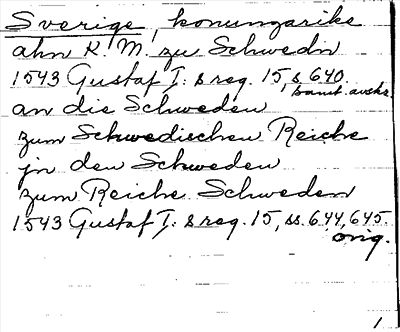 Sverige, konungarike
ahn K. M. zu Schwedn
1543 Gustaf I: s reg. 15, s. 640.
samt. avskr.
an die Schweden
zum Schwedischen Reiche
jn den Schweden
zum Reiche Schweden
1543 Gustaf I: s reg. 15, ss. 644, 645.
orig.
1